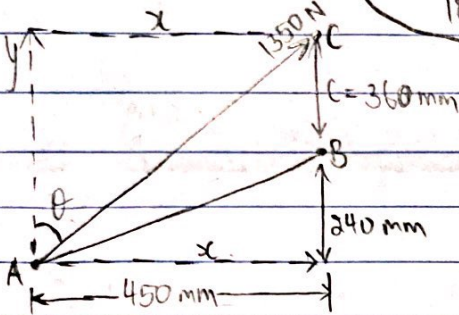 x
1350 N
C
y
C = 360 mm
B
θ
240 mm
x
A
450 mm